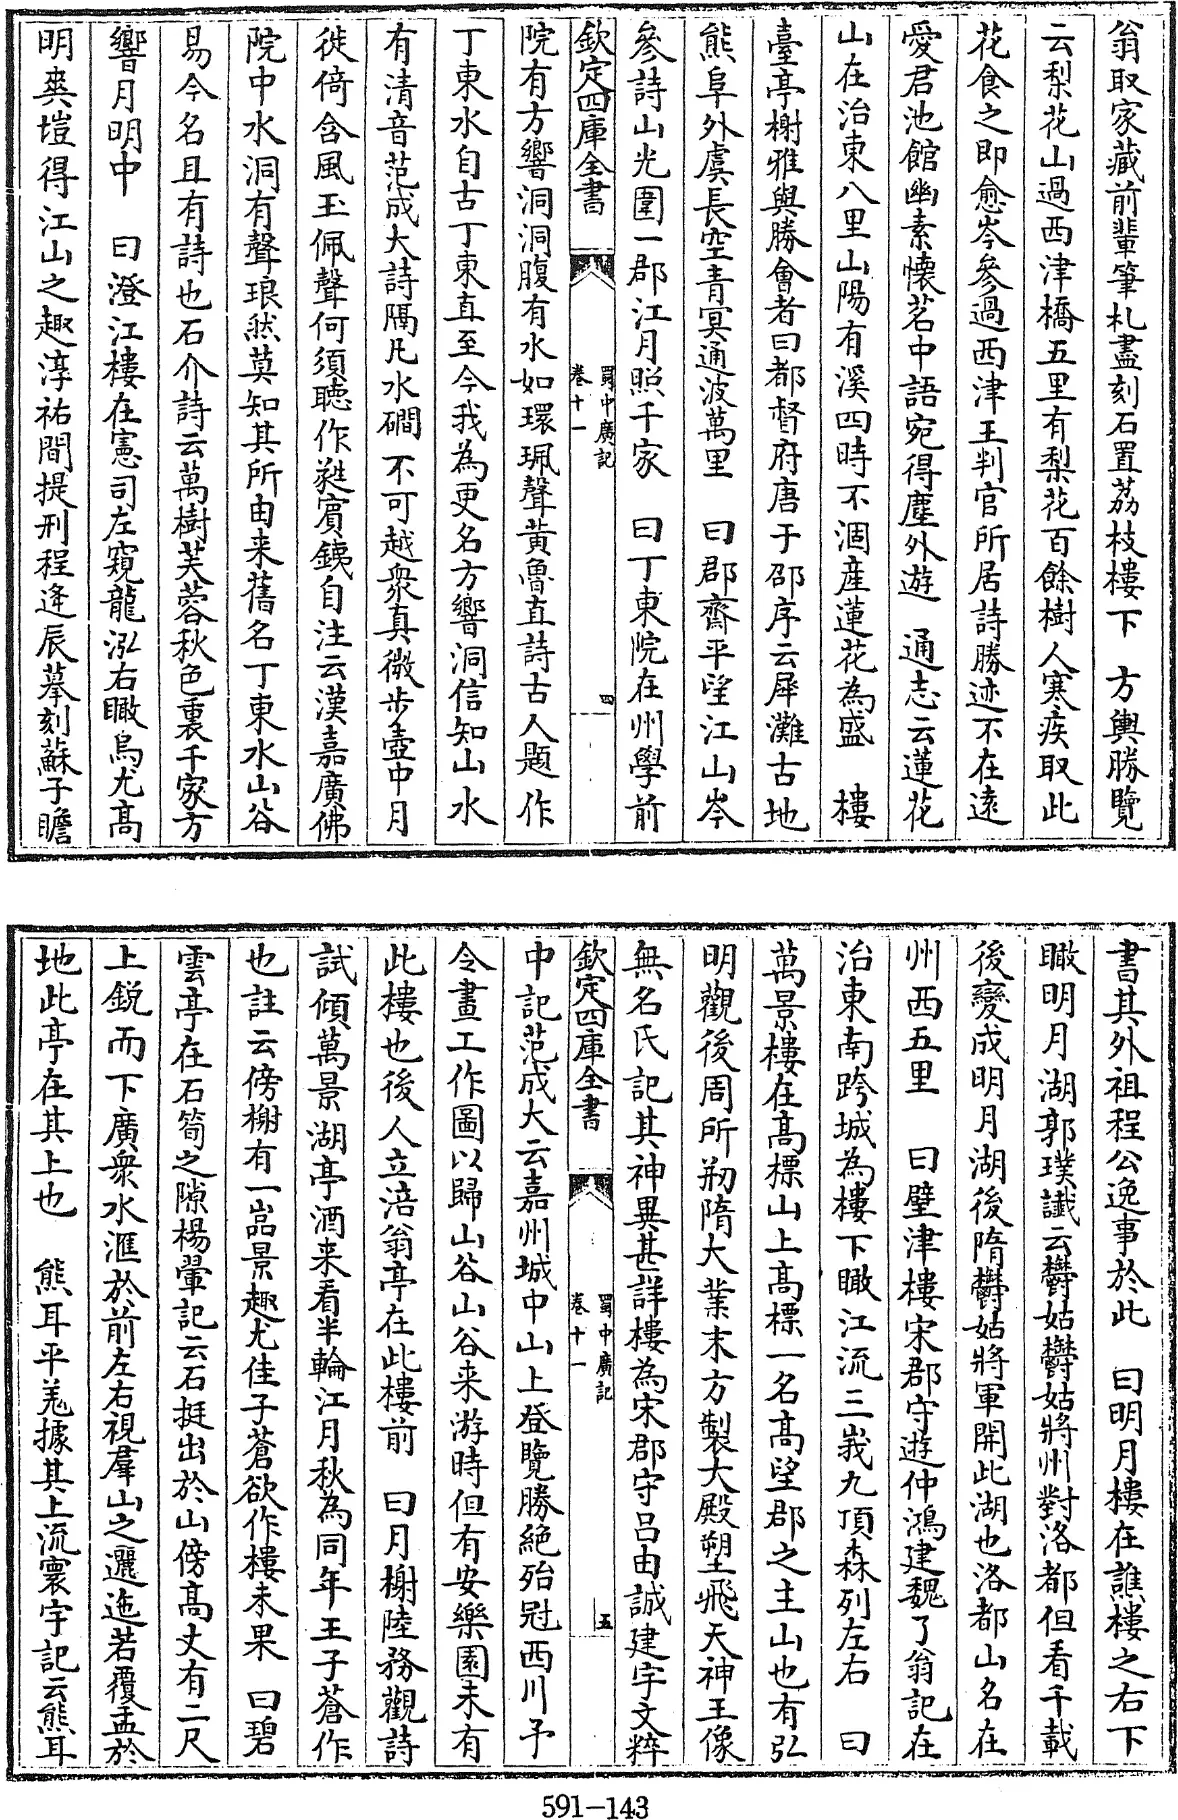 翁取家藏前輩筆札盡刻石置荔枝樓下　方輿勝覽
云梨花山過西津橋五里有梨花百餘樹人寒疾取此
花食之即愈岑參過西津王判官所居詩勝迹不在逺
愛君池館幽素懐茗中語宛得塵外遊　通志云蓮花
山在治東八里山陽有溪四時不涸産蓮花為盛　樓
臺亭榭雅與勝會者曰都督府唐于邵序云犀灘古地
熊阜外虞長空青冥通波萬里　曰郡齋平望江山岑
參詩山光圍一郡江月照千家　曰丁東院在州學前
欽定四庫全書
蜀中廣記
卷十一
四
院有方響洞洞腹有水如環珮聲黄魯直詩古人題作
丁東水自古丁東直至今我為更名方響洞信知山水
有清音范成大詩隔凡水磵不可越衆真微步壺中月
徙倚含風玉佩聲何須聴作㽔賓鐵自注云漢嘉廣佛
院中水洞有聲琅然莫知其所由来舊名丁東水山谷
易今名且有詩也石介詩云萬樹芙蓉秋色裏千家方
響月明中　曰澄江樓在憲司左窺龍泓右瞰烏尤髙
明爽塏得江山之趣淳祐間提刑程逢辰摹刻蘇子瞻
書其外祖程公逸事於此　曰明月樓在譙樓之右下
瞰明月湖郭璞讖云欝姑欝姑將州對洛都但看千載
後變成明月湖後隋欝姑將軍開此湖也洛都山名在
州西五里　曰壁津樓宋郡守遊仲鴻建魏了翁記在
治東南跨城為樓下瞰江流三峩九頂森列左右　曰
萬景樓在髙標山上髙標一名髙望郡之主山也有弘
明觀後周所剏隋大業末方製大殿塑飛天神王像
無名氏記其神異甚詳樓為宋郡守吕由誠建宇文粹
欽定四庫全書
蜀中廣記
卷十一
五
中記范成大云嘉州城中山上登覽勝絶殆冠西川予
令畫工作圖以歸山谷山谷来游時但有安樂園未有
此樓也後人立涪翁亭在此樓前　曰月榭陸務觀詩
試傾萬景湖亭酒来看半輪江月秋為同年王子蒼作
也註云傍榭有一嵓景趣尤佳子蒼欲作樓未果　曰碧
雲亭在石筍之隙楊翬記云石挺出於山傍髙丈有二尺
上鋭而下廣衆水滙於前左右視羣山之邐迤若覆盂於
地此亭在其上也　熊耳平羌據其上流寰宇記云熊耳
591-143